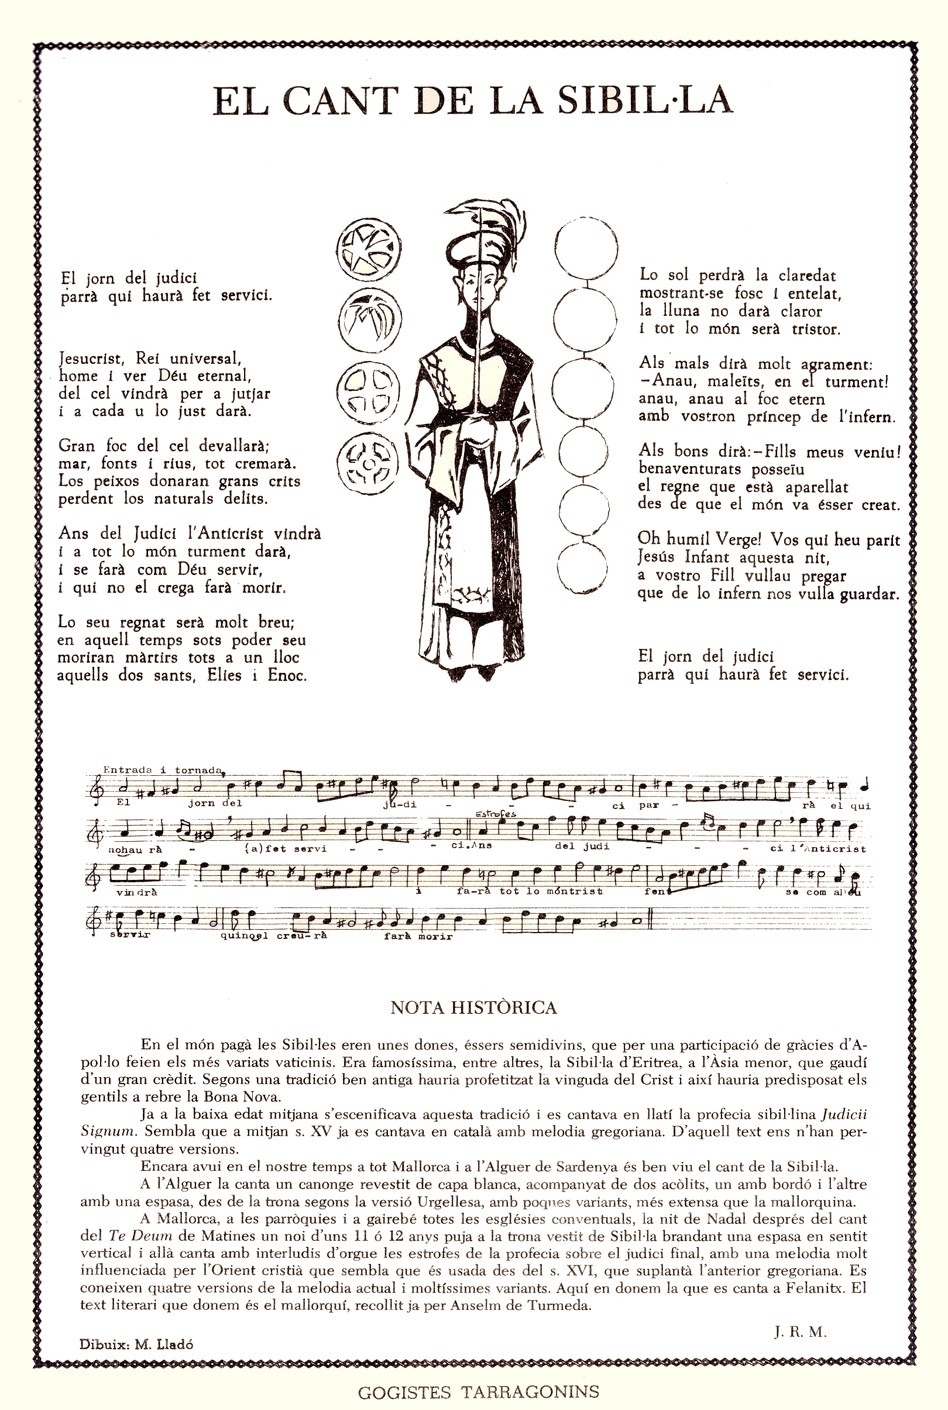 EL CANT DE LA SIBIL·LA
El jorn del judici
parrà qui haurà fet servici.
Jesucrist, Rei universal,
home i ver Déu eternal,
del cel vindrà per a jutjar
i a cada u lo just darà.
Gran foc del cel devallarà;
mar, fonts i rius, tot cremarà.
Los peixos donaran grans crits
perdent los naturals delits.
Ans del Judici l'Anticrist vindrà
i a tot lo món turment darà,
i se farà com Déu servir,
i qui no el crega farà morir.
Lo seu regnat serà molt breu;
en aquell temps sots poder seu
moriran màrtirs tots a un lloc
aquells dos sants, Elies i Enoc.
Lo sol perdrà la claredat
mostrant-se fosc i entelat,
la lluna no darà claror
i tot lo món serà tristor.
Als mals dirà molt agrament:
-Anau, maleïts, en el turment!
anau, anau al foc etern
amb vostron príncep de l'infern.
Als bons dirà:-Fills meus veniu!
benaventurats posseïu
el regne que està aparellat
des de que el món va ésser creat.
Oh humil Verge! Vos qui heu parit
Jesús Infant aquesta nit,
a vostro Fill vullau pregar
que de lo infern nos vulla guardar.
El jorn del judici
parrà qui haurà fet servici.
Entrada i tornada
El jorn del ju-di - - - ci par - rà el qui
Estrofes
nohau rà - (a)fet servi - - - ci.Ans del judi - - - ci l'Anticrist
vindrà i fa-rà tot lo móntrist fent se com al
servir quino el creu-rà farà morir
NOTA HISTÒRICA
En el món pagà les Sibil·les eren unes dones, éssers semidivins, que per una participació de gràcies d'A-
pol·lo feien els més variats vaticinis. Era famosíssima, entre altres, la Sibil·la d'Eritrea, a l'Àsia menor, que gaudí
d'un gran crèdit. Segons una tradició ben antiga hauria profetitzat la vinguda del Crist i així hauria predisposat els
gentils a rebre la Bona Nova.
Ja a la baixa edat mitjana s'escenificava aquesta tradició i es cantava en llatí la profecia sibil·lina Judicii
Signum. Sembla que a mitjan s. XV ja es cantava en català amb melodia gregoriana. D'aquell text ens n'han per-
vingut quatre versions.
Encara avui en el nostre temps a tot Mallorca i a l'Alguer de Sardenya és ben viu el cant de la Sibil·la.
A l'Alguer la canta un canonge revestit de capa blanca, acompanyat de dos acòlits, un amb bordó i l'altre
amb una espasa, des de la trona segons la versió Urgellesa, amb poques variants, més extensa que la mallorquina.
A Mallorca, a les parròquies i a gairebé totes les esglésies conventuals, la nit de Nadal després del cant
del Te Deum de Matines un noi d'uns 11 ó 12 anys puja a la trona vestit de Sibil·la brandant una espasa en sentit
vertical i allà canta amb interludis d'orgue les estrofes de la profecia sobre el judici final, amb una melodia molt
influenciada per l'Orient cristià que sembla que és usada des del s. XVI, que suplantà l'anterior gregoriana. Es
coneixen quatre versions de la melodia actual i moltíssimes variants. Aquí en donem la que es canta a Felanitx. El
text literari que donem és el mallorquí, recollit ja per Anselm de Turmeda.
J. R. M.
Dibuix: M. Lladó
GOGISTES TARRAGONINS